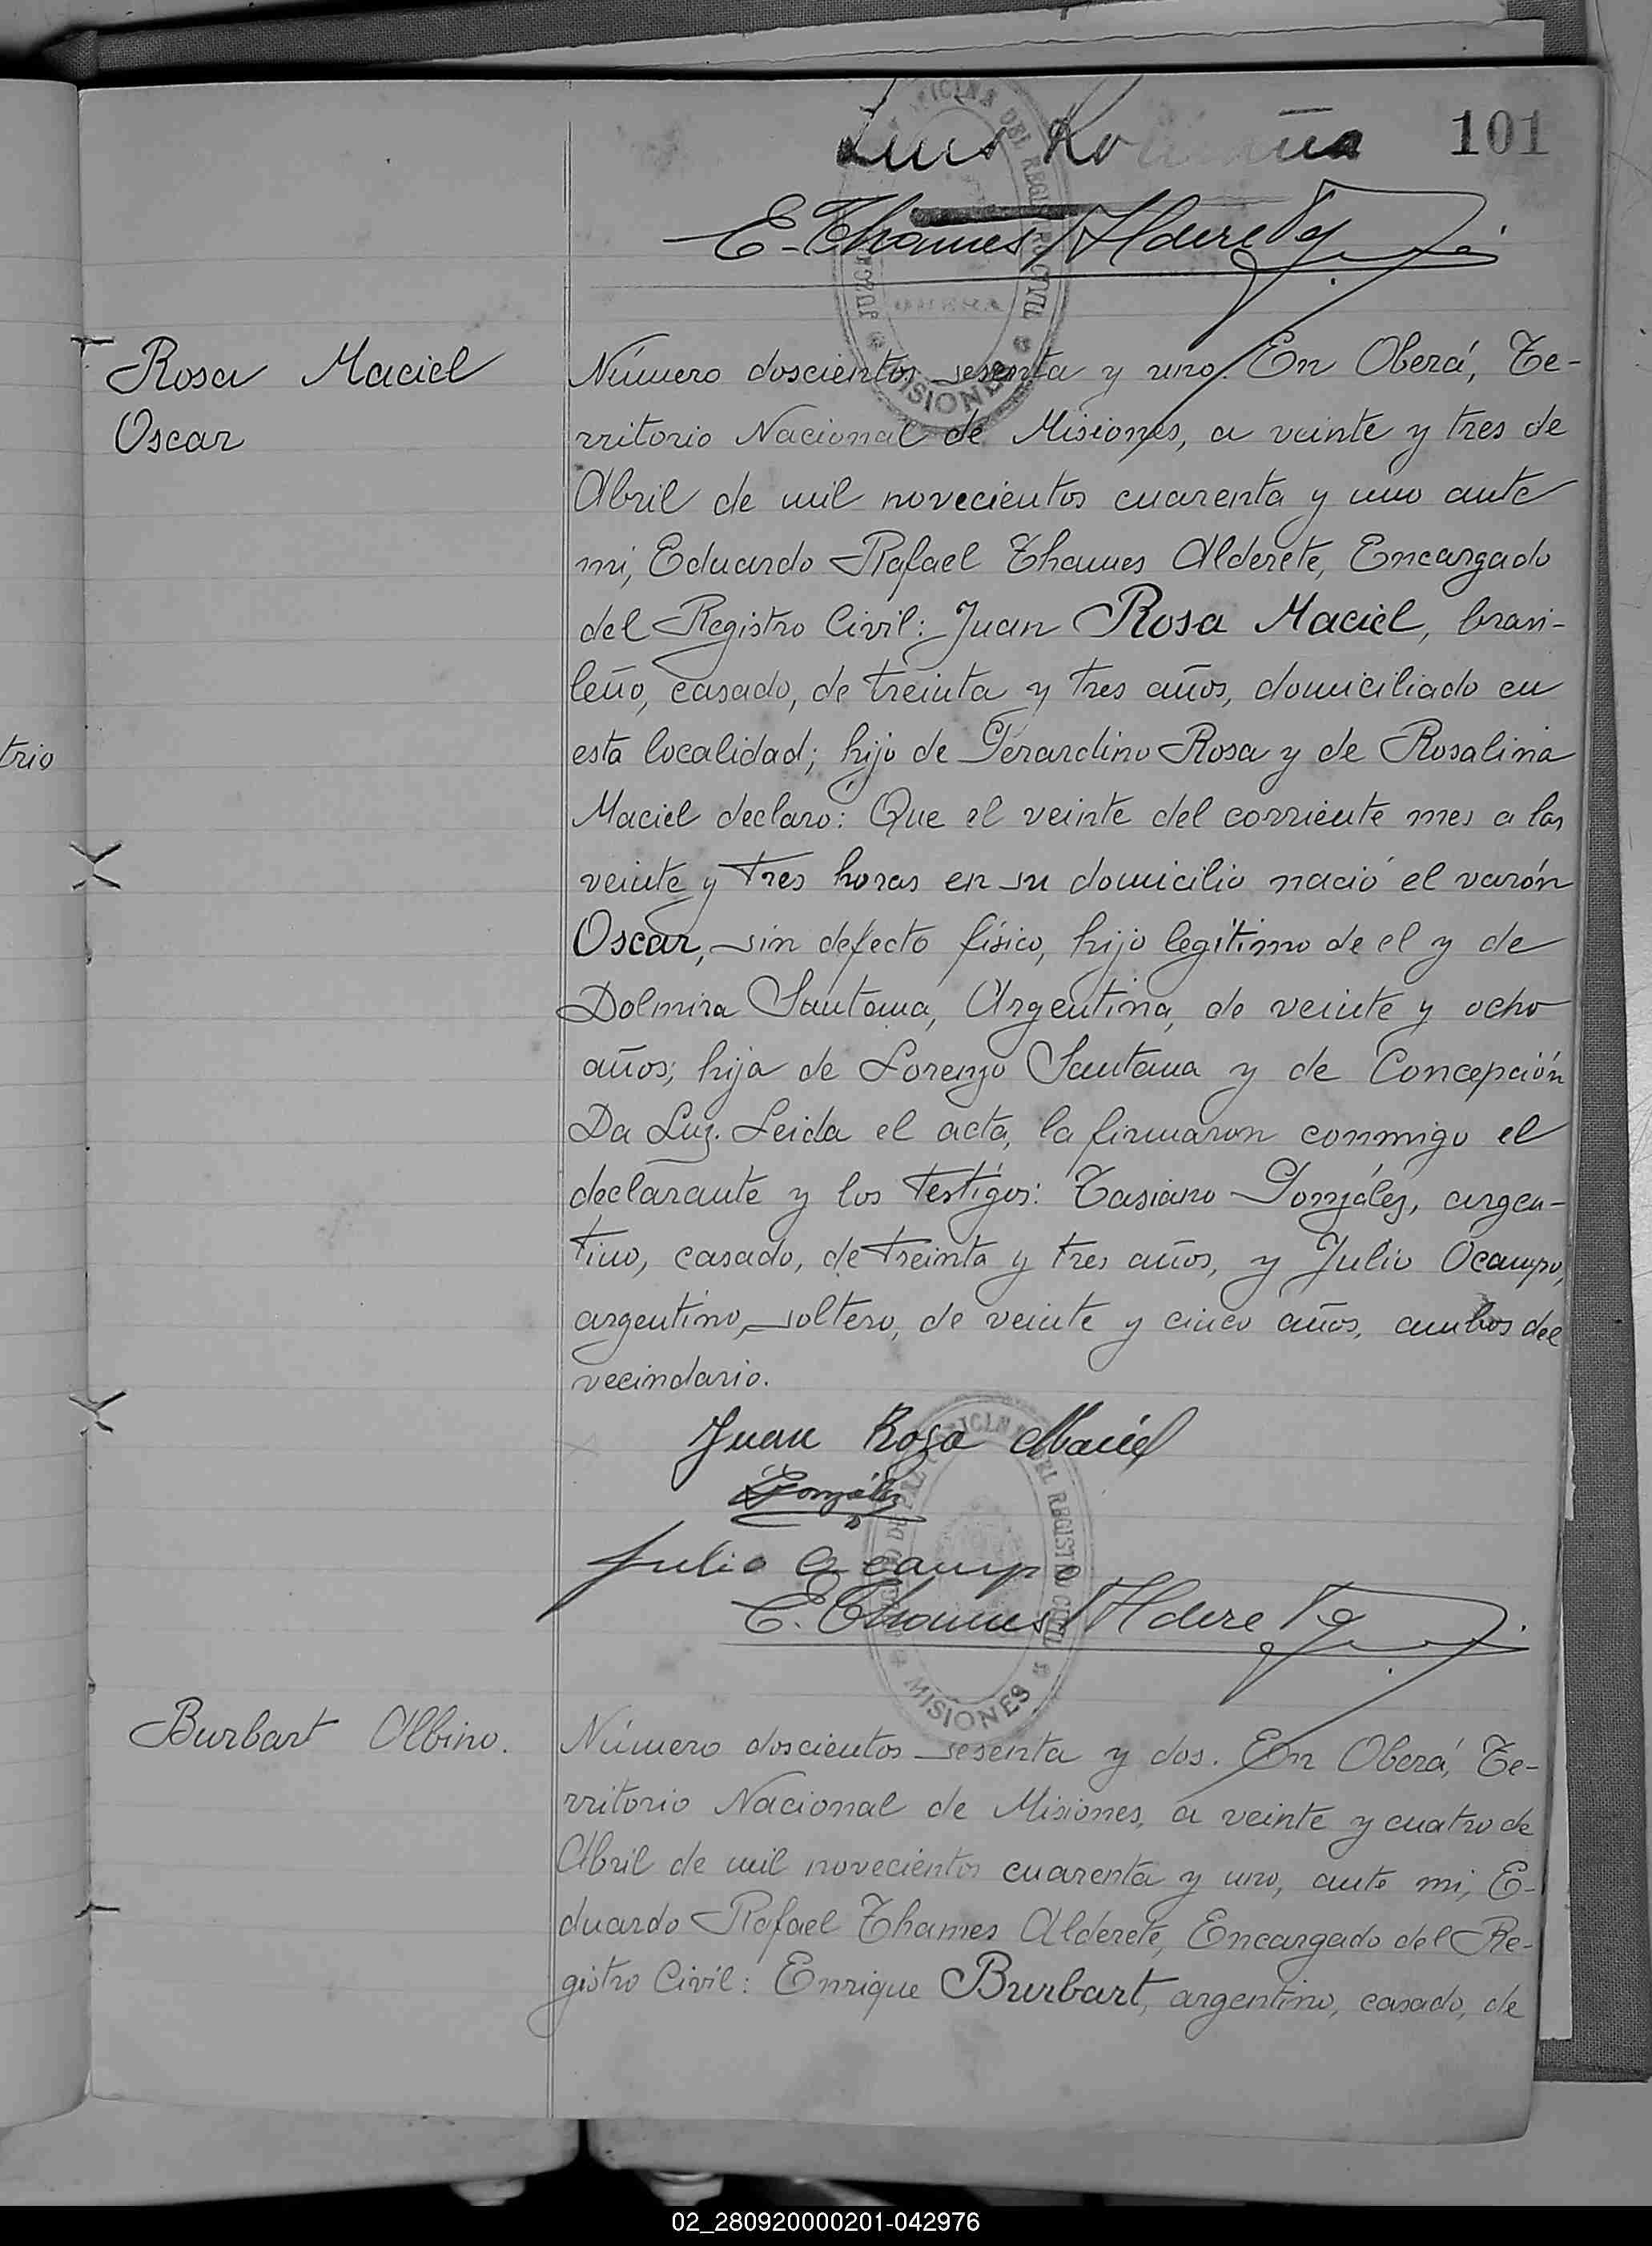 101
Luis
E. Thames Alderete
OFICINA DEL REGISTRO CIVIL
OBERA
MISIONES
Rosa Maciel
Oscar
Número doscientos sesenta y uno. En Oberá, Te-
rritorio Nacional de Misiones, a veinte y tres de
Abril de mil novecientos cuarenta y uno ante
mi, Eduardo Rafael Thames Alderete, Encargado
del Registro Civil: Juan Rosa Maciel, brasi-
leño, casado, de treinta y tres años, domiciliado en
esta localidad; hijo de Gerardino Rosa y de Rosalina
Maciel declaro: Que el veinte del corriente mes a las
veinte y tres horas en su domicilio nació el varón
Oscar, sin defecto físico, hijo legítimo de el y de
Dolmira Santana, Argentina, de veinte y ocho
años; hija de Lorenzo Santana y de Concepción
Da Luz. Leida el acta, la firmaron conmigo el
declarante y los testigos: Tasiano González, argen-
tino, casado, de treinta y tres años, y Julio Ocampo,
argentino, soltero, de veinte y cinco años, ambos del
vecindario.
Juan Rosa Maciel
González
Julio Ocampo
E. Thames Alderete
OFICINA DEL REGISTRO CIVIL
MISIONES
trio
Burbart Albino.
Número doscientos sesenta y dos. En Oberá, Te-
rritorio Nacional de Misiones, a veinte y cuatro de
Abril de mil novecientos cuarenta y uno, ante mi, E-
duardo Rafael Thames Alderete, Encargado del Re-
gistro Civil: Enrique Burbart, argentino, casado, de
02_280920000201-042976